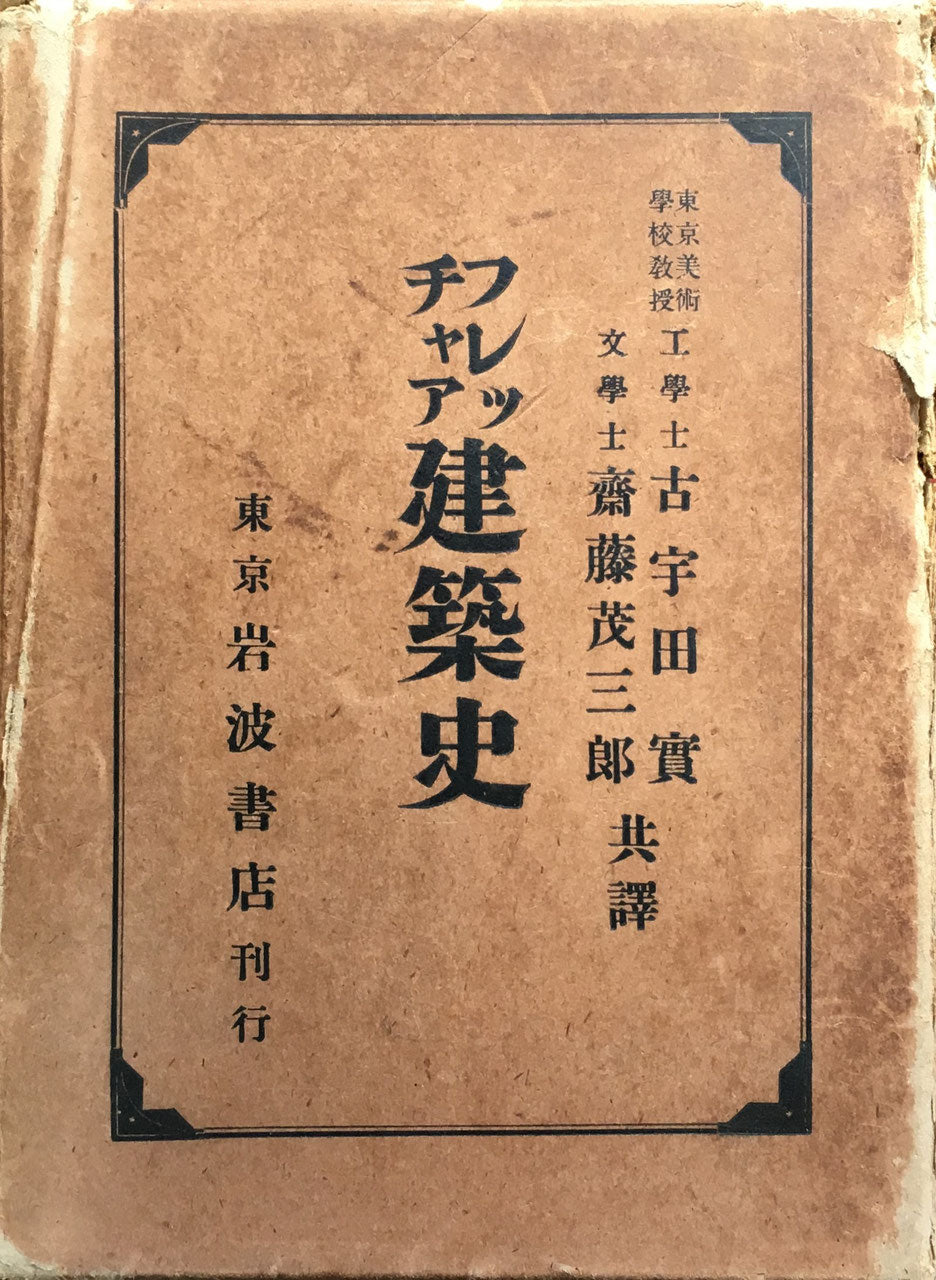 東京美術
學校敎授
工學士 古宇田實
文學士 齋藤茂三郎
共譯
フレッ
チャア
建築史
東京 岩波書店 刊行